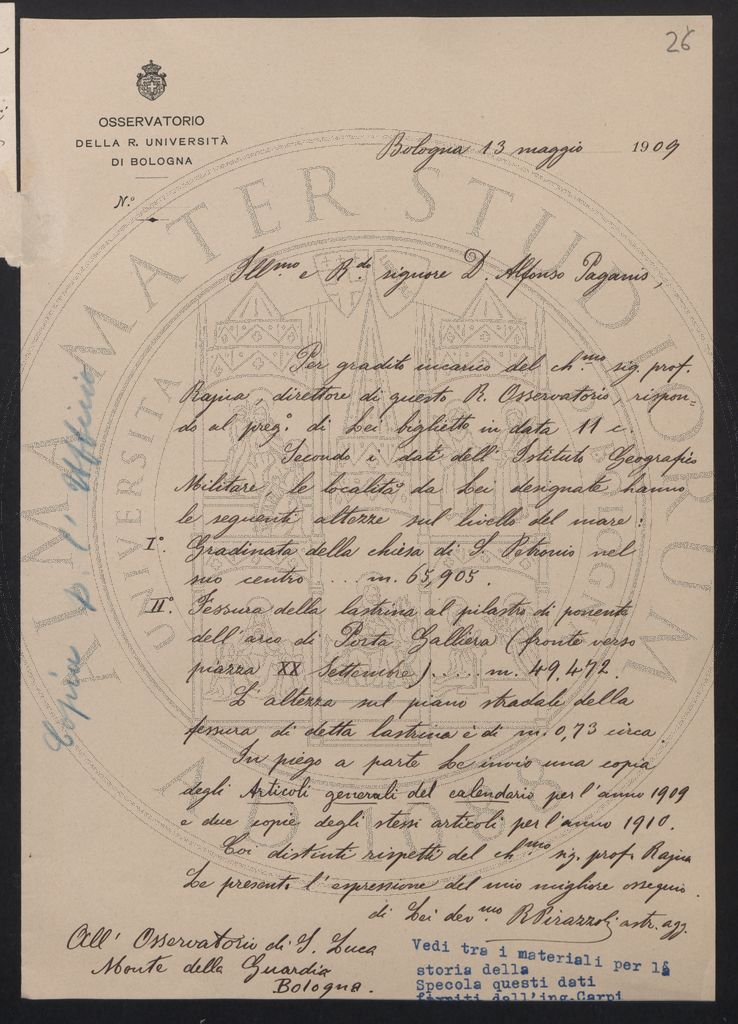 26
OSSERVATORIO
DELLA R. UNIVERSITÀ
DI BOLOGNA
N.º
Bologna 13 maggio 1909
Ill.mo e R.do signore D. Alfonso Paganis,
Per gradito incarico del ch.mo sig. prof.
Rajna, direttore di questo R. Osservatorio, rispon=
do al preg.º di Lei biglietto in data 11 c.
Secondo i dati dell' Istituto Geografico
Militare, le località da Lei designate hanno
le seguenti altezze sul livello del mare:
Iº. Gradinata della chiesa di S. Petronio nel
suo centro .... m. 65,905.
IIº. Fessura della lastrina al pilastro di ponente
dell'arco di Porta Galliera (fronte verso
piazza XX Settembre)..... m. 49,472.
L'altezza sul piano stradale della
fessura di detta lastrina è di m. 0,73 circa.
In piego a parte Le invio una copia
degli Articoli generali del calendario per l'anno 1909
e due copie degli stessi articoli per l'anno 1910.
Coi distinti rispetti del ch.mo sig. prof. Rajna
Le presento l'espressione del mio migliore ossequio.
di Lei dev.mo R Pirazzoli astr. agg.
All' Osservatorio di S. Luca
Monte della Guardia
Bologna.
Copia p. l'Ufficio
Vedi tra i materiali per la
storia della
Specola questi dati
forniti dall'ing.Carpi
ALMA MATER STUDIORUM
UNIVERSITA
A.D. 1088